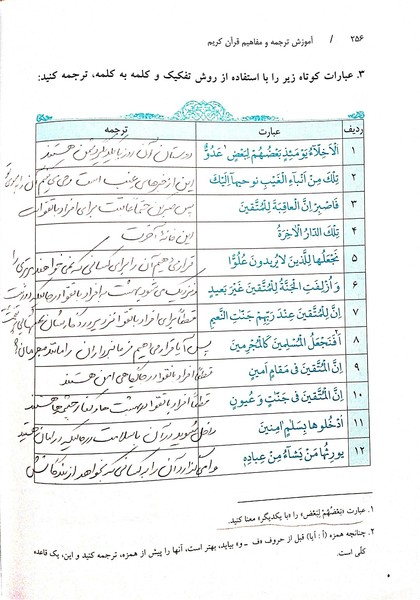 ۲۵۶ / آموزش ترجمه و مفاهیم قرآن کریم
۳. عبارات کوتاه زیر را با استفاده از روش تفکیک و کلمه به کلمه، ترجمه کنید:
ردیف عبارت ترجمه
۱ اَلْاَخِلَّاءُ یَوْمَئِذٍ بَعْضُهُمْ لِبَعْضٍ عَدُوٌّ دوستان آن روز با یکدیگر دشمن هستند
۲ تِلْکَ مِنْ اَنْبَآءِ الْغَیْبِ نُوحیهآ اِلَیْکَ این از خبرهای غیب است وحی می‌کنیم آن را به سوی تو
۳ فَاصْبِرْ اِنَّ الْعَاقِبَةَ لِلْمُتَّقینَ پس صبر کن حتما عاقبت برای افراد با تقوا است
۴ تِلْکَ الدَّارُ الْاٰخِرَةُ این خانه آخرت
۵ نَجْعَلُهَا لِلَّذینَ لَا یُریدُونَ عُلُوًّا قرار می‌دهیم آن را برای کسانی که نمی‌خواهند برتری را
۶ وَ اُزْلِفَتِ الْجَنَّةُ لِلْمُتَّقینَ غَیْرَ بَعیدٍ و نزدیک می‌شود بهشت به افراد با تقوا در حالیکه دور نیست
۷ اِنَّ لِلْمُتَّقینَ عِنْدَ رَبِّهِمْ جَنَّاتِ النَّعیمِ قطعاً برای افراد با تقوا نزد پروردگارشان
۸ اَفَنَجْعَلُ الْمُسْلِمینَ کَالْمُجْرِمینَ پس آیا قرار می‌دهیم فرمانبرداران را مانند مجرمان؟
۹ اِنَّ الْمُتَّقینَ فی مَقَامٍ اَمینٍ قطعاً افراد با تقوا در جایگاهی امن هستند
۱۰ اِنَّ الْمُتَّقینَ فی جَنَّاتٍ وَ عُیُونٍ قطعاً افراد با تقوا در بهشت ها و کنار چشمه‌ها هستند
۱۱ اُدْخُلُوهَا بِسَلَامٍ اٰمِنینَ داخل شوید در آن با سلامت در حالیکه در امان هستید
۱۲ یُورِثُهَا مَنْ یَشَآءُ مِنْ عِبَادِهٖ آن را به کسانی که بخواهد از بندگانش
۱. عبارت «بَعْضُهُمْ لِبَعْضٍ» را «با یکدیگر» معنا کنید.
۲. چنانچه همزه (أ : آیا) قبل از حروف «ف ـ و» بیاید، بهتر است، آنها را پیش از همزه، ترجمه کنید و این، یک قاعده
کلّی است.